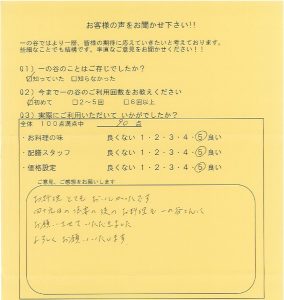 お客様の声をお聞かせ下さい!!
一の谷ではより一層、皆様の期待に応えていきたいと考えております。
些細なことでも結構です。率直なご意見をお聞かせください!!
Q1）一の谷のことはご存じでしたか?
☑知っていた □知らなかった
Q2）今まで一の谷のご利用回数をお教えください
☑初めて □2～5回 □6回以上
Q3）実際にご利用いただいて いかがでしたか?
全体 100点満点中 90 点
・お料理の味 良くない 1・2・3・4・⑤良い
・配膳スタッフ 良くない 1・2・3・4・⑤良い
・価格設定 良くない 1・2・3・4・⑤良い
ご意見、ご感想をお願いします
お料理 とても おいしかったです
四十九日の法要の後の お料理も 一の谷さんに
お願いさせていただきました
よろしく お願いいたします